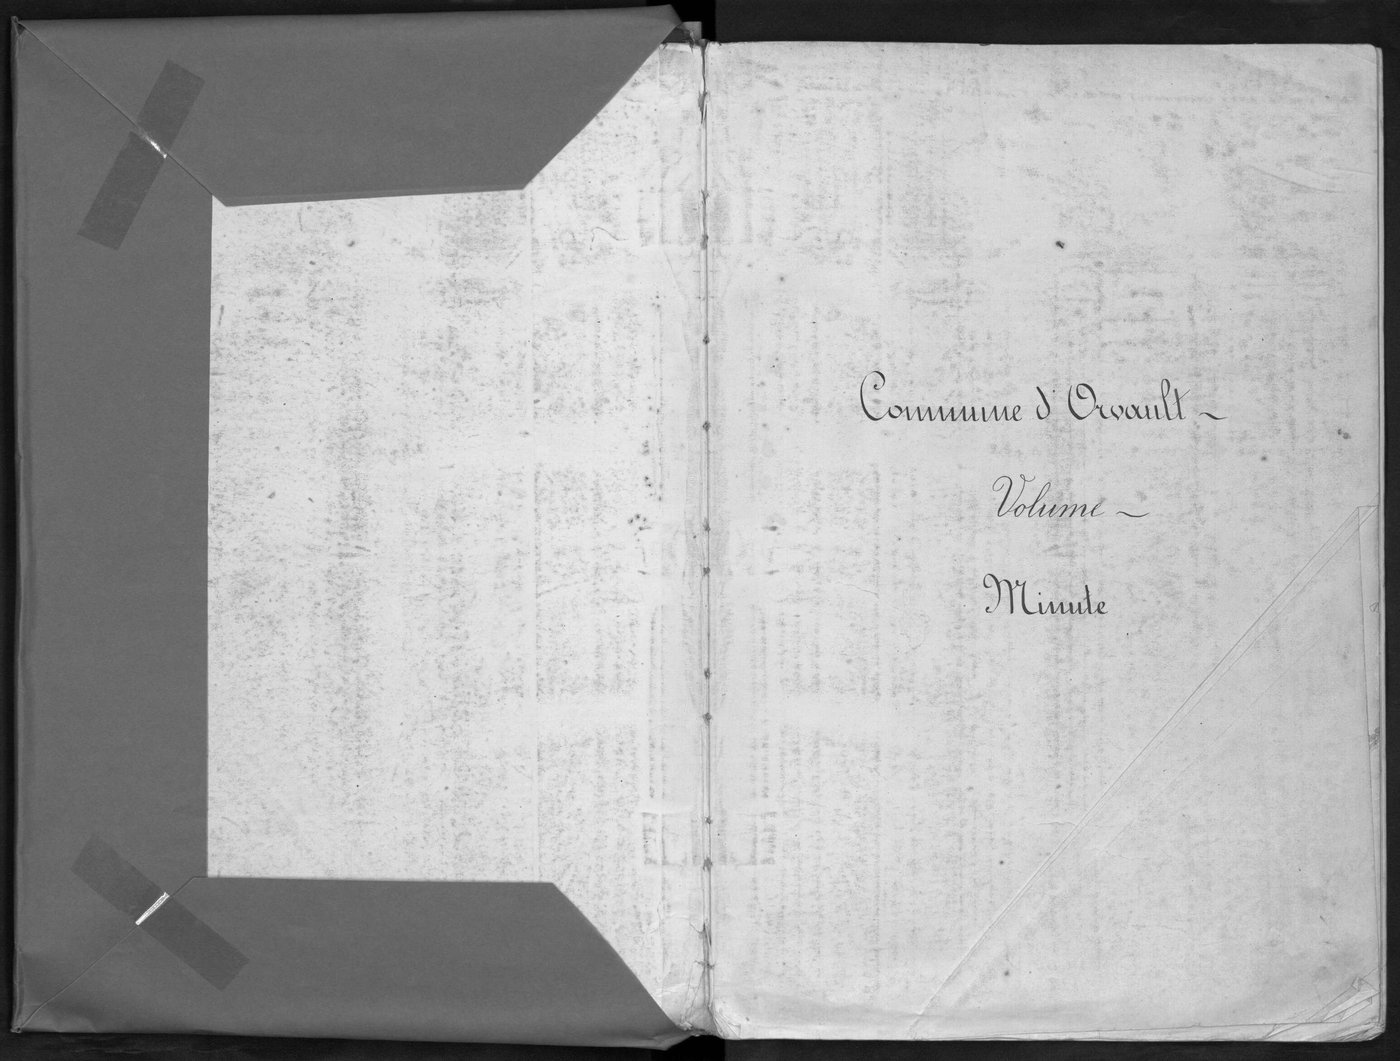 Commune d'Orvault ~
Volume ~
Minute